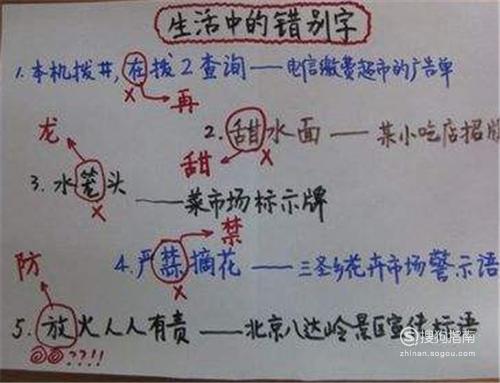 生活中的错别字
1.本机拨井,在拨2查询——电信缴费超市的广告单
× 再
龙
2.甜水面——某小吃店招牌
甜 ×
3.水笼头——菜市场标示牌
×
禁
4.严蒜摘花——三圣乡花卉市场警示语
×
防
5.放火人人有责——北京八达岭景区宣传标语
??!!
搜狗指南
zhinan.sogou.com